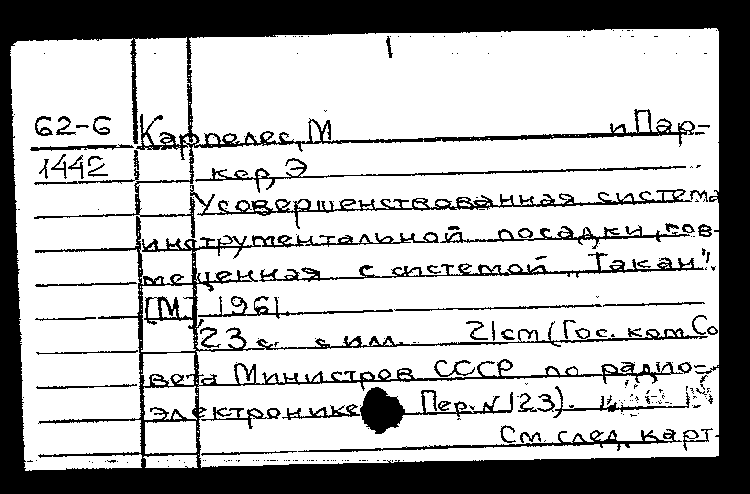 62-6 Карпелес, М и Пар-
1442 кер, Э
Усовершенствованная система
инструментальной посадки, сов-
мещенная с системой „Такан".
[М], 1961.
23 с. с илл. 21cm (Гос. ком. Со
вета Министров СССР по радио-
электронике Пер. N 123).
См. след. карт.